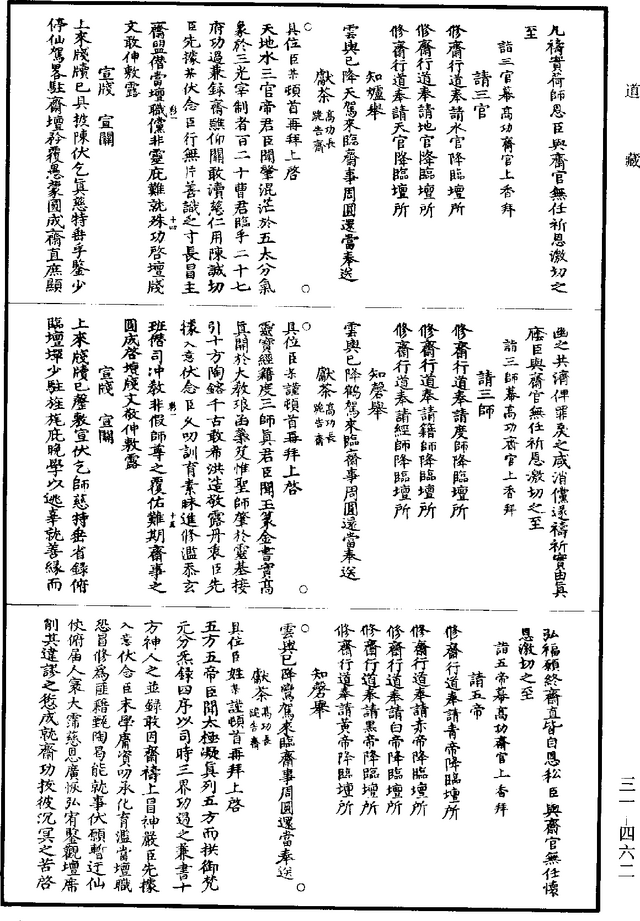 道藏
凡禱實荷師恩臣與齋官無任祈恩激切之
至
詣三官幕高功齋官上香拜
請三官
修齋行道奉請水官降臨壇所
修齋行道奉請地官降臨壇所
修齋行道奉請天官降臨壇所
知爐舉
雲輿已降天駕來臨齋事周圓還當奉送
獻茶 高功長跪告齋
具位臣某頓首再拜上啓
天地水三官帝君臣聞肇混茫於五太分氣
象於三光宰制者百二十曹君臨乎二十七
府功過兼録齋醮仰關敢瀆慈仁用陳誠切
臣先據某伏念臣行無片善識乏寸長冒主
齋盟僭當壇職儻非靈庇難就殊功啓壇牋
文敢伸敷露
宣牋 宣關
上來牋牘已具披陳伏乞真慈特垂孚鑒少
停仙駕畧駐齋壇矜覆愚蒙圓成齋直庶顯
幽之共濟俾罪戾之咸消儻遂禱祈實由真
廕臣與齋官無任祈恩激切之至
詣三師幕高功齋官上香拜
請三師
修齋行道奉請度師降臨壇所
修齋行道奉請籍師降臨壇所
修齋行道奉請經師降臨壇所
知磬舉
雲輿已降鶴駕來臨齋事周圓還當奉送
獻茶 高功長跪告齋
具位臣某謹頓首再拜上啓
靈寶經籍度三師真君臣聞玉篆金書實高
真開於大教琅函蘂笈惟聖師肇於靈基接
引十方陶鎔千古敢希洪造敬露丹衷臣先
據入意伏念臣久叨訓育素昧進修濫忝玄
班僭司冲教非假師尊之覆佑難期齋事之
圓成啓壇牋文敬伸敷露
宣牋 宣關
上來牋牘已罄敷宣伏乞師慈特垂省錄俯
臨壇墠少駐旌旄庇晚學以逃辜就善緣而
弘福願終齋直皆自恩私臣與齋官無任懷
恩激切之至
詣五帝幕高功齋官上香拜
請五帝
修齋行道奉請青帝降臨壇所
修齋行道奉請赤帝降臨壇所
修齋行道奉請白帝降臨壇所
修齋行道奉請黑帝降臨壇所
修齋行道奉請黃帝降臨壇所
知磬舉
雲輿已降鸞駕來臨齋事周圓還當奉送
獻茶 高功長跪告齋
具位臣姓某謹頓首再拜上啓
五方五帝臣聞太極凝真列五方而拱御梵
元分炁録四序以司時三界功過之兼書十
方神人之並録敢因齋禱上冒神嚴臣先據
入意伏念臣末學庸資叨承化育濫當壇職
恐冒修為匪藉甄陶曷能就事伏願暫迂仙
俠俯届人寰大霈慈恩廣恢弘宥鑒觀壇席
削其違謬之愆成就齋功拔彼沉冥之苦啓
三一—四六二